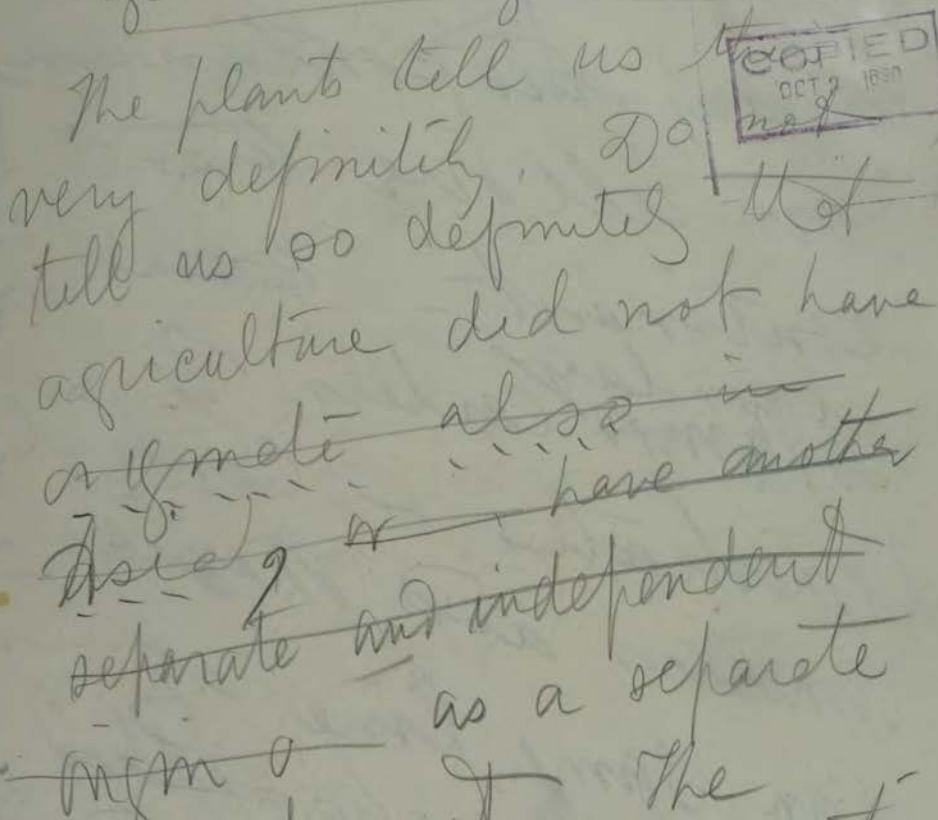 The plants tell us
COPIED
OCT 2
very definitely. Do not
tell us so definitely that
agriculture did not have
originate also in
Asia, or have another
separate and independent
as a separate
origin
The